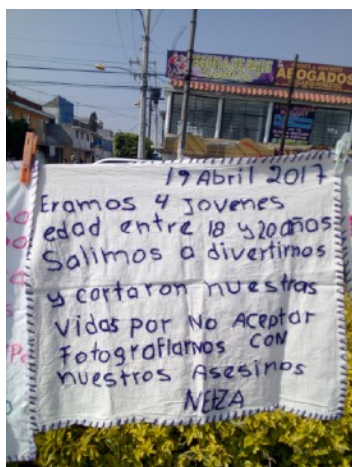 ESCUELA DE BAILE
ABOGADOS
19 Abril 2017
Eramos 4 Jovenes
edad entre 18 y 20 años
Salimos a divertirnos
y cortaron nuestras
vidas por No Aceptar
Fotografiarnos CON
nuestros Asesinos
NEZA